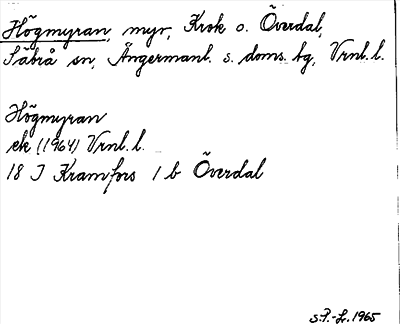 Högmyran, myr, Krok o. Överdal,
Säbrå sn, Ångermanl. s. doms. tg, Vrnl. l.
Högmyran
ek (1964) Vrnl. l.
18 J Kramfors 1 b Överdal
S.P.-L. 1965